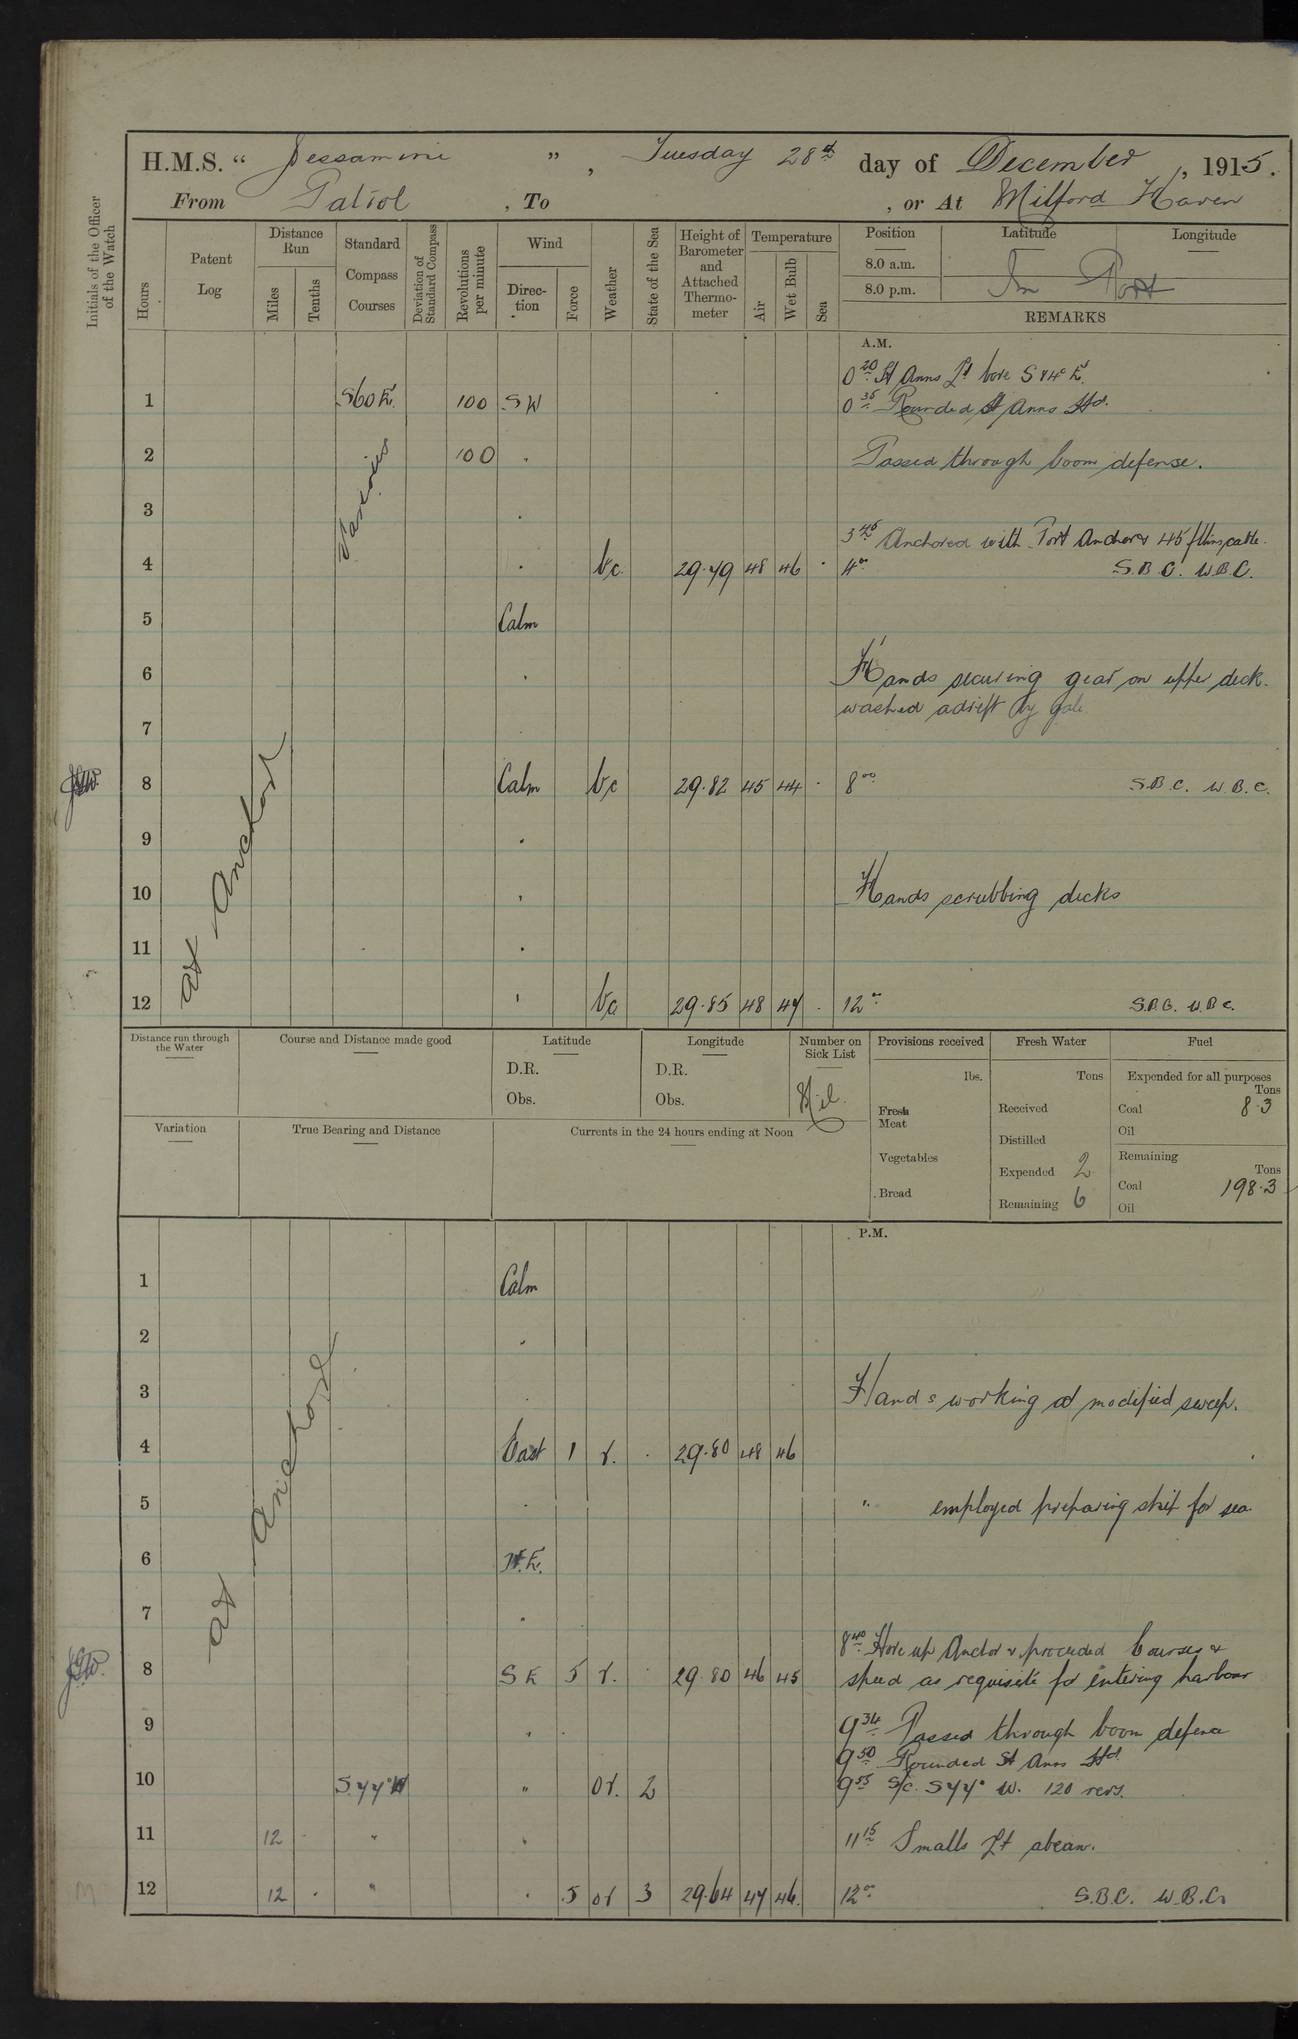 H.M.S. “ Jessamine ”, Tuesday 28th day of December, 1915.
From Patrol, To , or At Milford Haven
Initials of the Officer of the Watch
Hours
Patent Log
Distance Run
Miles
Tenths
Standard Compass Courses
Deviation of Standard Compass
Revolutions per minute
Wind
Direction
Force
Weather
State of the Sea
Height of Barometer and Attached Thermometer
Temperature
Air
Wet Bulb
Sea
Position Latitude Longitude
8.0 a.m.
8.0 p.m.
In Port
REMARKS
A.M.
0 20 St Anns Lt bore S 84° E.
1 S60E. 100 SW 0 35 Rounded St Anns Hd.
2 100 " Passed through boom defense.
Various
3 "
3 45 Anchored with Port Anchor 45 fthms cable.
4 " bc. 29.79 48 46 4 00 S.B.C. W.B.C.
5 Calm
6 " Hands securing gear on upper deck.
washed adrift by gale
7 "
8 Calm bc 29.82 45 44 8 00 S.B.C. W.B.C.
9 "
At Anchor
10 " Hands scrubbing decks
11 "
12 " bc 29.85 48 47 12 00 S.B.C. W.B.C.
Distance run through the Water
Course and Distance made good
Latitude
D.R.
Obs.
Longitude
D.R.
Obs.
Number on Sick List
Nil.
Provisions received
lbs.
Fresh Meat
Vegetables
Bread
Fresh Water
Tons
Received
Distilled
Expended 2
Remaining 6
Fuel
Expended for all purposes
Tons
Coal 8.3
Oil
Remaining
Tons
Coal 198.3
Oil
Variation
True Bearing and Distance
Currents in the 24 hours ending at Noon
P.M.
1 Calm
2 "
3 " Hands working at modified sweep.
4 East 1 r. 29.80 48 46
5 " " employed preparing ship for sea
At Anchor
6 N.E.
7 "
8 40 Hove up Anchor & proceeded Courses &
8 SE 5 r. 29.80 46 45 speed as requisite for entering harbour
9 " 9 34 Passed through boom defence
9 50 Rounded St Anns Hd.
10 S 77° W " or. 2 9 55 S/C. S 77° W. 120 revs.
11 12 " " 11 15 Smalls Lt abeam.
12 12 " " 5 or 3 29.64 47 46. 12 00 S.B.C. W.B.C.